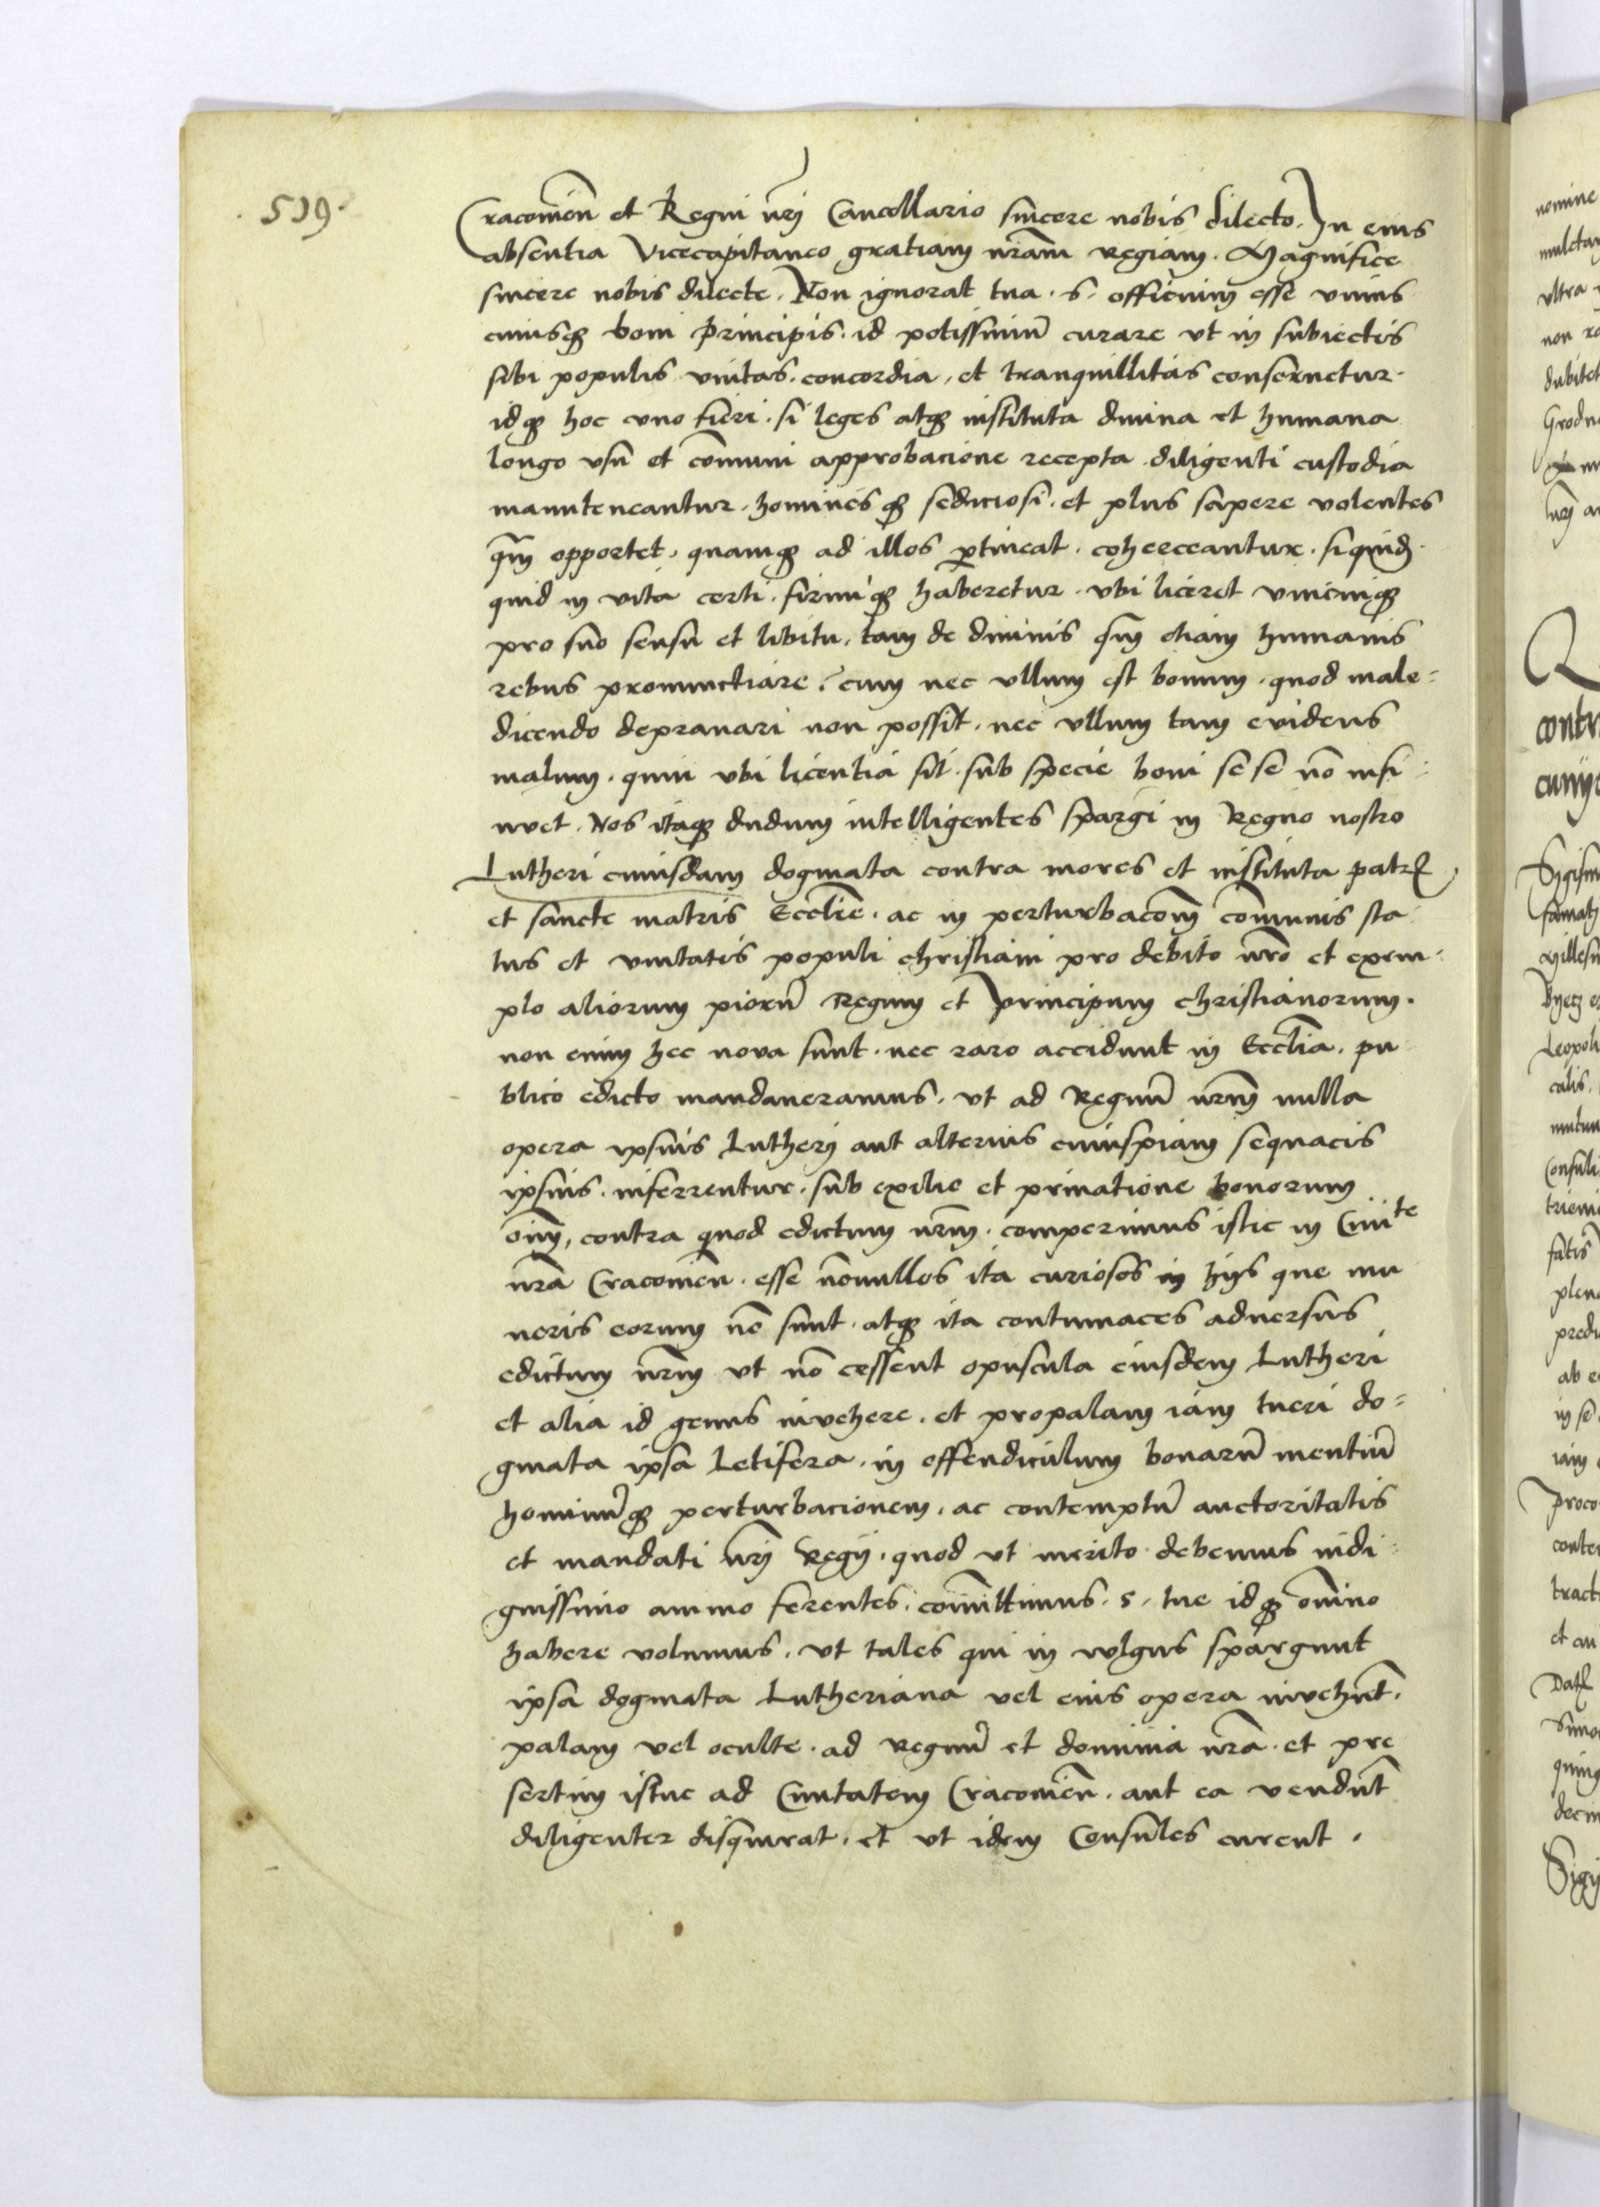 . 519 .
Cracovień et Regni nrj̄ Cancellario sincere nobis dilecto. In eius
absentia Vicecapitaneo gratiam nrām regiam. Magnifice
sincere nobis dilecte. Non ignorat tua. s. officium esse unius
cuiusq3 boni principis. id potissimū curare ut in subiectis
sibi populis unitas. concordia, et tranquillitas conservetur.
idq3 hoc uno fieri. si leges atq3 instituta divina et humana
longo usu et cōmuni approbacione recepta. diligenti custodia
manuteneantur. hominesq3 sediciosi. et plus sapere volentes
q̄m opportet, quamq3 ad illos p̱tineat. coherceantur. siquid
quid in vita certi. firmiq3 haberetur. ubi liceret unicuiq3
pro suo sensu et libitu, tam de divinis q̄m etiam humanis
rebus pronunctiare? cum nec ullum est bonum. quod male=
dicendo depravari non possit. nec ullum tam evidens
malum. quin ubi licentia sit. sub specie boni se se nō insi=
nuet. Nos itaq3 dudum intelligentes spargi in Regno nostro
Lutheri cuiusdam dogmata contra mores et instituta patrꝝ
et sancte matris Ecclīe. ac in perturbacōem cōmunis sta
tus et unitatis populi christiani pro debito nrō et exem=
plo aliorum piorū Regum et principum christianorum.
non enim hec nova sunt. nec raro accidunt in Ecclīa. pu
blico edicto mandaveramus. ut ad Regnū nrm̄ nulla
opera ipsius Lutherj aut alterius cuiuspiam sequacis
ipsius. inferrentur. sub exilio et privatione bonorum
oīm, contra quod edictum nrm̄. comperimus istic in Civite
nrā Cracovień. esse nōnullos ita curiosos in hijs que mu
neris eorum nō sunt. atq3 ita contumaces adversus
edictum nrm̄ ut nō cessent opuscula eiusdem Lutheri
et alia id genus invehere. et propalam iam tueri do=
gmata ipsa Letifera. in offendiculum bonarū mentiū
hominūq3 perturbacionem. ac contemptū auctoritatis
et mandati nrj̄ Regij. quod ut merito debemus indi=
gnissimo animo ferentes. cōmittimus. s. tue idq3 oīno
habere volumus. ut tales qui in vulgus spargunt
ipsa dogmata Lutheriana vel eius opera invehūt.
palam vel oculte. ad Regnū et dominia nrā. et pre
sertim istuc ad Civitatem Cracovień. aut ea vendūt
diligenter disquirat. et ut idem Consules curent.